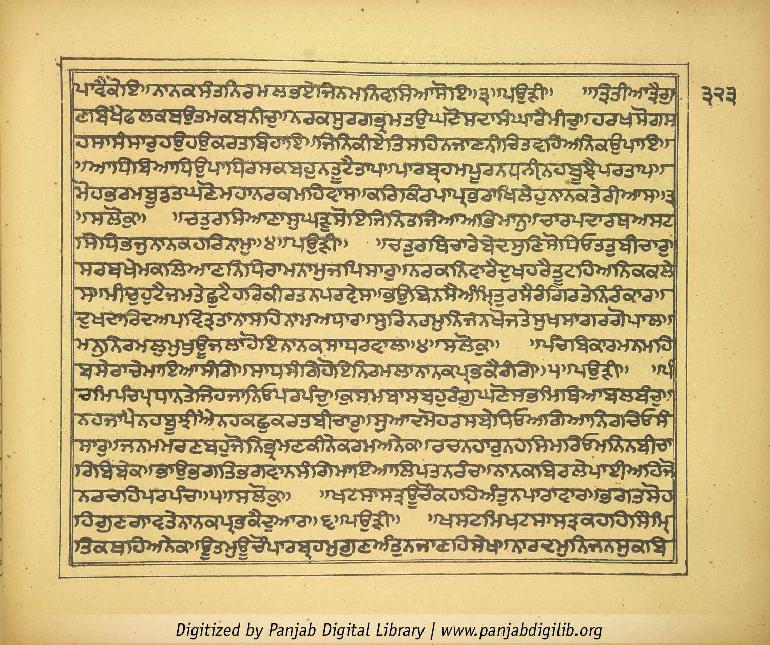 ਪਾਵੈਕੋਇ॥ਨਾਨਕਸੰਤਨਿਰਮਲਭਏਜਿਨਮਨਿਵਸਿਆਸੋਇ॥੩॥ਪਉੜੀ॥ ॥ਤ੍ਰਿਤੀਆਤ੍ਰੈਗੁ ੩੨੩
ਣਬਿਖੈਫਲਕਬਉਤਮਕਬਨੀਚੁ॥ਨਰਕਸੁਰਗਭ੍ਰਮਤਉਘਣੋਸਦਾਸੰਘਾਰੈਮੀਚੁ॥ਹਰਖਸੋਗਸ
ਹਸਾਸੰਸਾਰੁਹਉਹਉਕਰਤਬਿਹਾਇ॥ਜਿਨਿਕੀਏਤਿਸਹਿਨਜਾਣਨੀਚਿਤਵਹਿਅਨਿਕਉਪਾਇ॥
॥ਆਧਿਬਿਆਧਿਉਪਾਧਿਰਸਕਬਹੁਨਤੂਟੈਤਾਪ॥ਪਾਰਬ੍ਰਹਮਪੂਰਨਧਨੀਨਹਬੂਝੈਪਰਤਾਪ॥
ਮੋਹਭਰਮਬੂਡਤਘਣੋਮਹਾਨਰਕਮਹਿਵਾਸ॥ਕਰਿਕਿਰਪਾਪ੍ਰਭਰਾਖਿਲੇਹੁਨਾਨਕਤੇਰੀਆਸ॥੩
॥ਸਲੋਕੁ॥ ॥ਚਤੁਰਸਿਆਣਾਸੁਘੜੁਸੋਇਜਿਨਿਤਜਿਆਅਭਿਮਾਨੁ॥ਚਾਰਪਦਾਰਥਅਸਟ
ਸਿਧਿਭਜੁਨਾਨਕਹਰਿਨਾਮੁ॥੪॥ਪਉੜੀ॥ ॥ਚਤੁਰਥਿਚਾਰੇਬੇਦਸੁਣਿਸੋਧਿਓਤਤੁਬੀਚਾਰੁ॥
ਸਰਬਖੇਮਕਲਿਆਣਨਿਧਿਰਾਮਨਾਮੁਜਪਿਸਾਰੁ॥ਨਰਕਨਿਵਾਰੈਦੁਖਹਰੈਤੂਟਹਿਅਨਿਕਕਲੇ
ਸ॥ਮੀਚੁਹੁਟੈਜਮਤੇਛੁਟੈਹਰਿਕੀਰਤਨਪਰਵੇਸ॥ਭਉਬਿਨਸੈਅੰਮ੍ਰਿਤੁਰਸੈਰੰਗਿਰਤੇਨਿਰੰਕਾਰ॥
ਦੁਖਦਾਰਿਦਅਪਵਿਤ੍ਰਤਾਨਾਸਹਿਨਾਮਅਧਾਰ॥ਸੁਰਿਨਰਮੁਨਿਜਨਖੋਜਤੇਸੁਖਸਾਗਰਗੋਪਾਲ॥
ਮਨੁਨਿਰਮਲੁਮੁਖੁਊਜਲਾਹੋਇਨਾਨਕਸਾਧਰਵਾਲ॥੪॥ਸਲੋਕੁ॥ ॥ਪੰਚਬਿਕਾਰਮਨਮਹਿ
ਬਸੇਰਾਚੇਮਾਇਆਸੰਗਿ॥ਸਾਧਸੰਗਿਹੋਇਨਿਰਮਲਾਨਾਨਕਪ੍ਰਭਕੈਰੰਗਿ॥੫॥ਪਉੜੀ॥ ॥ਪੰ
ਚਮਿਪੰਚਪ੍ਰਧਾਨਤੇਜਿਹਜਾਨਿਓਪਰਪੰਚੁ॥ਕੁਸਮਬਾਸਬਹੁਰੰਗੁਘਣੋਸਭਮਿਥਿਆਬਲਬੰਚੁ॥
ਨਹਜਾਪੈਨਹਬੂਝੀਐਨਹਕਛੁਕਰਤਬੀਚਾਰੁ॥ਸੁਆਦਮੋਹਰਸਬੇਧਿਓਅਗਿਆਨਿਰਚਿਓਸੰ
ਸਾਰੁ॥ਜਨਮਮਰਣਬਹੁਜੋਨਿਭ੍ਰਮਣਕੀਨੇਕਰਮਅਨੇਕ॥ਰਚਨਹਾਰੁਨਹਸਿਮਰਿਓਮਨਿਨਬੀਚਾ
ਰਿਬਿਬੇਕ॥ਭਾਉਭਗਤਿਭਗਵਾਨਸੰਗਿਮਾਇਆਲਿਪਤਨਰੰਚ॥ਨਾਨਕਬਿਰਲੇਪਾਈਅਹਿਜੋ
ਨਰਚਹਿਪਰਪੰਚ॥੫॥ਸਲੋਕੁ॥ ॥ਖਟਸਾਸਤ੍ਰਊਚੌਕਹਹਿਅੰਤੁਨਪਾਰਾਵਾਰ॥ਭਗਤਸੋਹ
ਹਿਗੁਣਗਾਵਤੇਨਾਨਕਪ੍ਰਭਕੈਦੁਆਰ॥੬॥ਪਉੜੀ॥ ॥ਖਸਟਮਿਖਟਸਾਸਤ੍ਰਕਹਹਿਸਿੰਮ੍ਰਿ
ਤਿਕਥਹਿਅਨੇਕ॥ਊਤਮੁਊਚੌਪਾਰਬ੍ਰਹਮੁਗੁਣਅੰਤੁਨਜਾਣਹਿਸੇਖ॥ਨਾਰਦਮੁਨਿਜਨਸੁਕਬਿ
Digitized by Panjab Digital Library | www.panjabdigilib.org